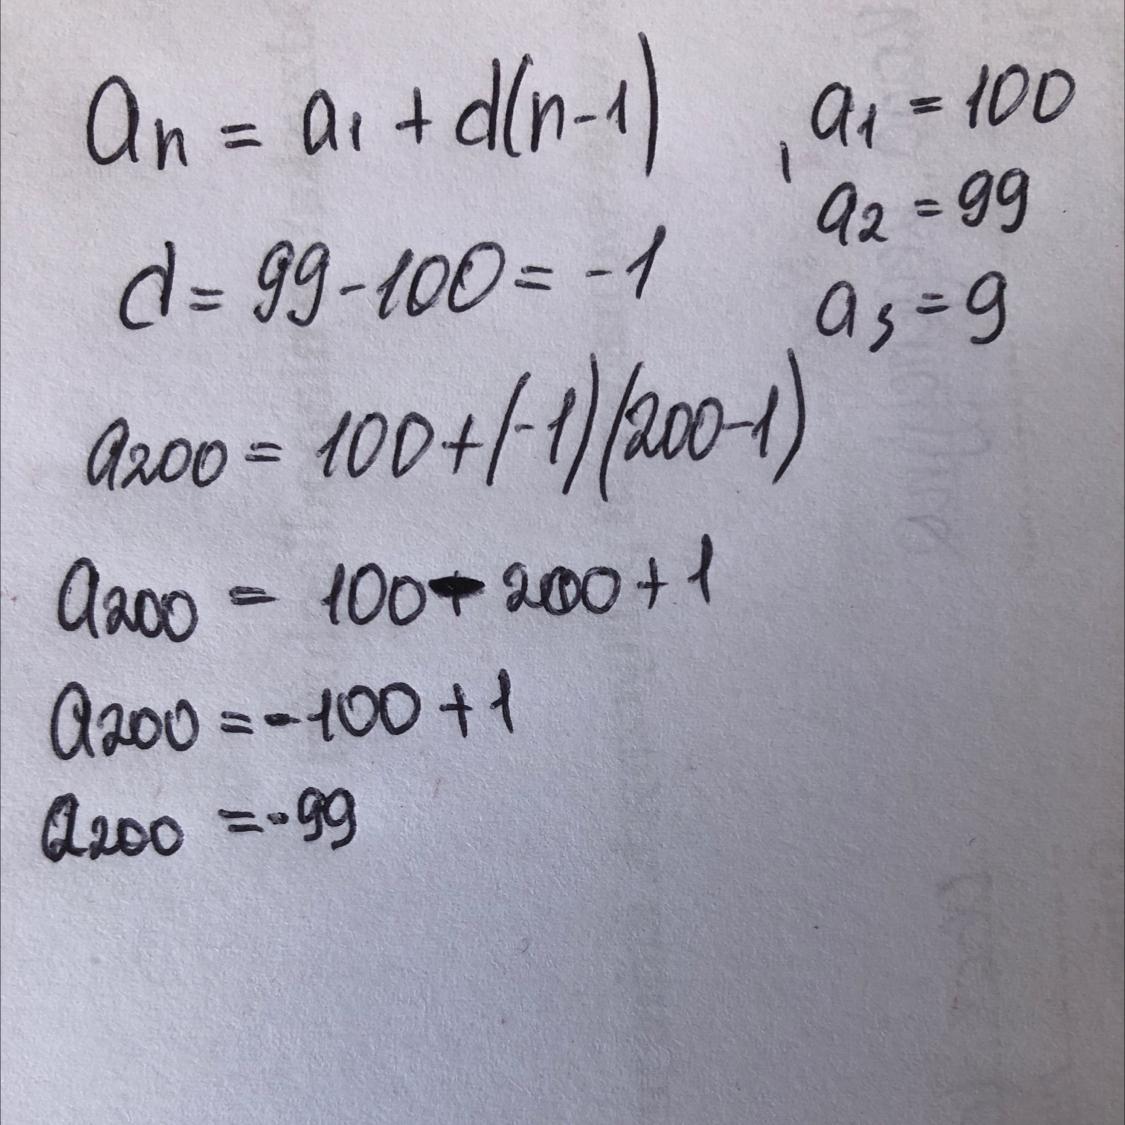 an = a1 + d(n-1)
a1 = 100
a2 = 99
a3 = 9
d = 99-100 = -1
a200 = 100+(-1)(200-1)
a200 = 100-200+1
a200 =-100+1
a200 =-99